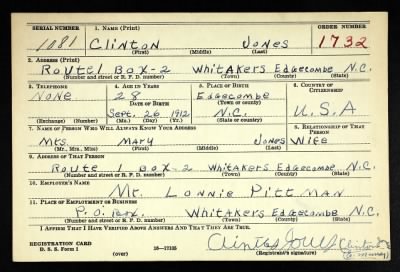 SERIAL NUMBER 1. NAME (Print) ORDER NUMBER
1081 Clinton Jones 1732
(First) (Middle) (Last)
2. ADDRESS (Print)
Route 1 Box-2 Whitakers Edgecombe N.C.
(Number and street or R. F. D. number) (Town) (County) (State)
3. TELEPHONE 4. AGE IN YEARS 5. PLACE OF BIRTH 6. COUNTRY OF CITIZENSHIP
None 28 Edgecombe
DATE OF BIRTH (Town or county)
Sept. 26 1912 N.C. U.S.A
(Exchange) (Number) (Mo.) (Day) (Yr.) (State or country)
7. NAME OF PERSON WHO WILL ALWAYS KNOW YOUR ADDRESS 8. RELATIONSHIP OF THAT PERSON
Mrs. Mary Jones Wife
(Mr., Mrs., Miss) (First) (Middle) (Last)
9. ADDRESS OF THAT PERSON
Route 1 Box-2 Whitakers Edgecombe N.C.
(Number and street or R. F. D. number) (Town) (County) (State)
10. EMPLOYER'S NAME
Mr. Lonnie Pittman
11. PLACE OF EMPLOYMENT OR BUSINESS
P.O. Box. Whitakers Edgecombe N.C.
(Number and street or R. F. D. number) (Town) (County) (State)
I AFFIRM THAT I HAVE VERIFIED ABOVE ANSWERS AND THAT THEY ARE TRUE.
REGISTRATION CARD
D. S. S. Form 1 16—17105 (Registrant's signature)
(over)